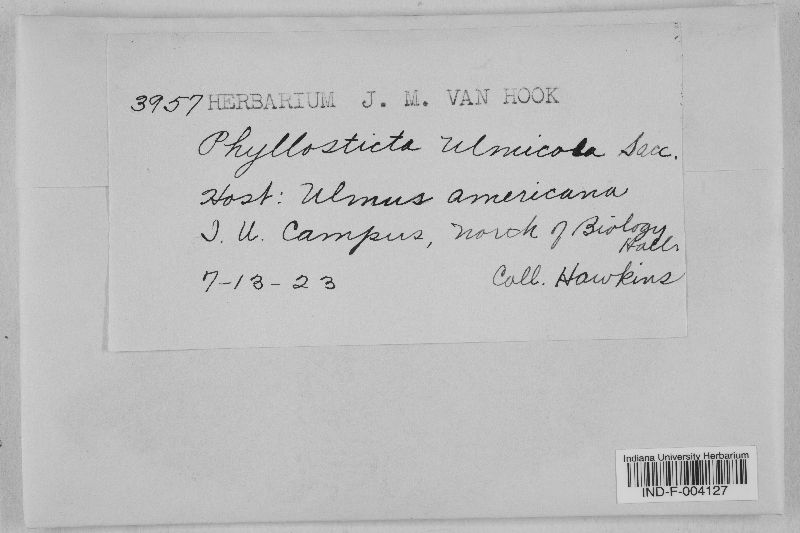 3957 HERBARIUM J. M. VAN HOOK
Phyllosticta ulmicola Sacc.
Host: Ulmus americana
I. U. Campus, north of Biology
Hall
7-13-23 Coll. Hawkins
Indiana University Herbarium
IND-F-004127